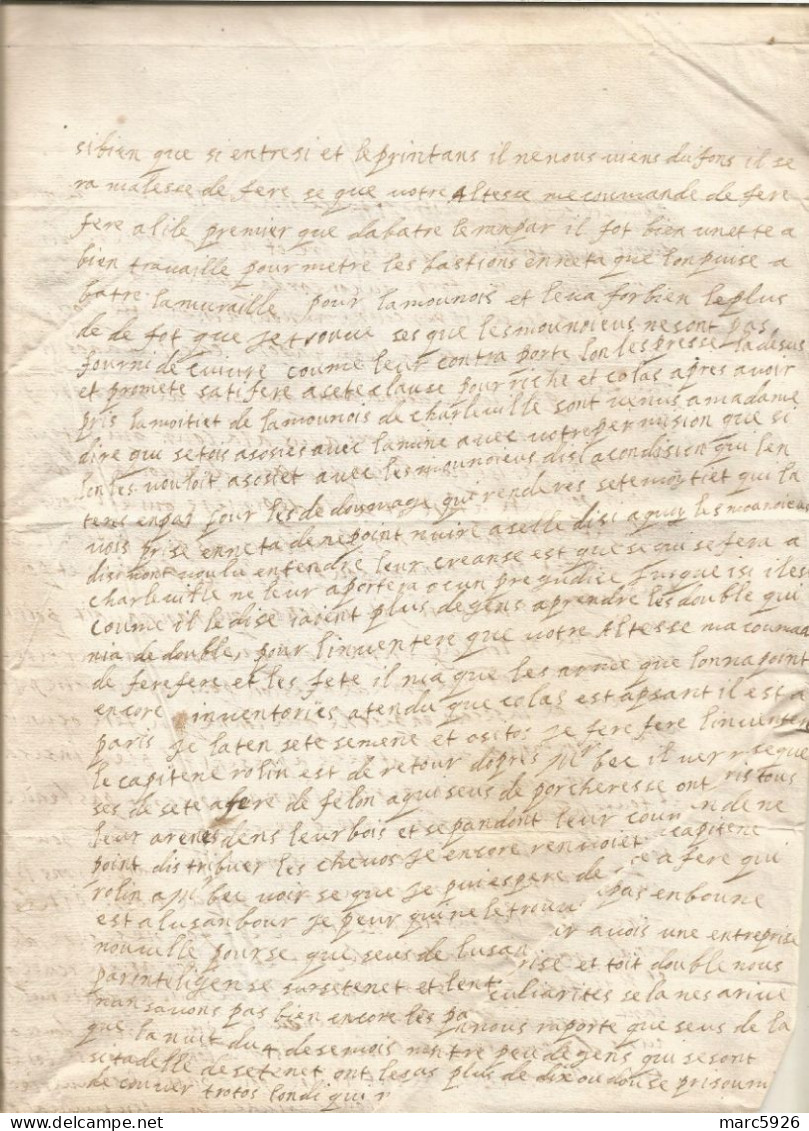 si bien que si entresi et le printans il ne nous viens du fons il se
ra malesce de fere se que votre Altesse me coumande de fere
fere a lile premier que dabatre le ranpar il fot bien unette a
bien travaille pour metre les bastions enneta que lon puise a
batre la muraille pour la mounois et le va for bien le plus
de de fot que je trouve ses que les mounoieus ne sont pas
fourni de cuivre coume leur contra porte lon les presse la desus
et promete satifere a cete clause pour riche et colas apres avoir
pris la moitiet de la mounois de charleville sont venus a madame
dire qui setois asosies avec la mine avec votre permision que si
lon les vouloit asosiet avec les mounoieus dis la condision qui len
tens en pas pour les dedoumage qui renderes sete moytiet qui la
vois prise enneta de ne point nuire a selle disi a quoy les mounoieus
disi nont voulu entendre leur creanse est que se qui se fera a
charleville ne leur aportera ocun pregudise jusque isi il es
coume il le dise iaient plus de gens a prendre les double qui
nia de double, pour linventere que votre Altesse ma coumad
de fere fere et les fete il nia que les armee que lonna point
encore inventories atendu que colas est apsant il est a
paris je laten sete semene et ositos je fere fere linventere
le capitene rolin est de retour dopres Mr bec il verr se que
ses de sete afere de felon a qui seus de porcheresse ont ris tous
leur arenes dens leur bois et se pandont leur cour nde ne
point distribuer les chevos je encore renvoiet capitene
rolin a Mr bec voir se que je puis espere de ce afere qui
est a lusanbour je peur qui ne le trouv pas en boune
nouvelle pourse que seus de lusan ir avois une entreprise
par inteligense sur setenet et lent rise et toit double nous
nan savons pas bien encore les pa culiarites se la nes arive
que la nuit du 4 de se mois notre peu de gens qui se sont
sitadelle de setenet ont le sas plus de dix ou douse prisoum
de couver trotos londi qui r nous raporte que seus de la
marc5926